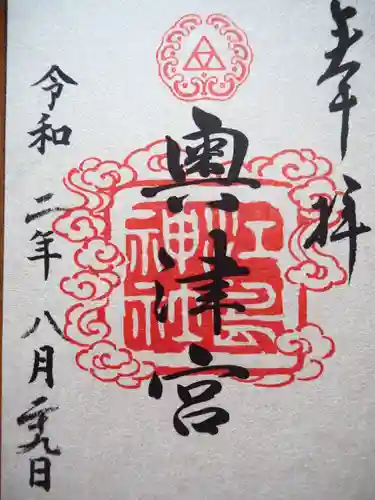 奉拝
奥津宮
江島神社
令和二年八月二十九日